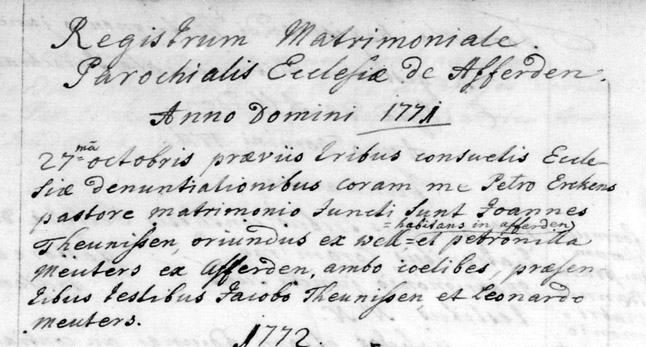 Registrum Matrimoniale
Parochialis Ecclesiæ de Afferden.
Anno Domini 1771
27mâ octobris præviis tribus consuetis Eccle-
siæ denuntiationibus coram me Petro Erckens
pastore matrimonio juncti sunt Joannes
=habitans in afferden
Theunissen, oriundus ex well=et petronilla
Meuters ex Afferden, ambo coelibes, præsen
tibus testibus Jacobo Theunissen et Leonardo
Meuters.
1772.